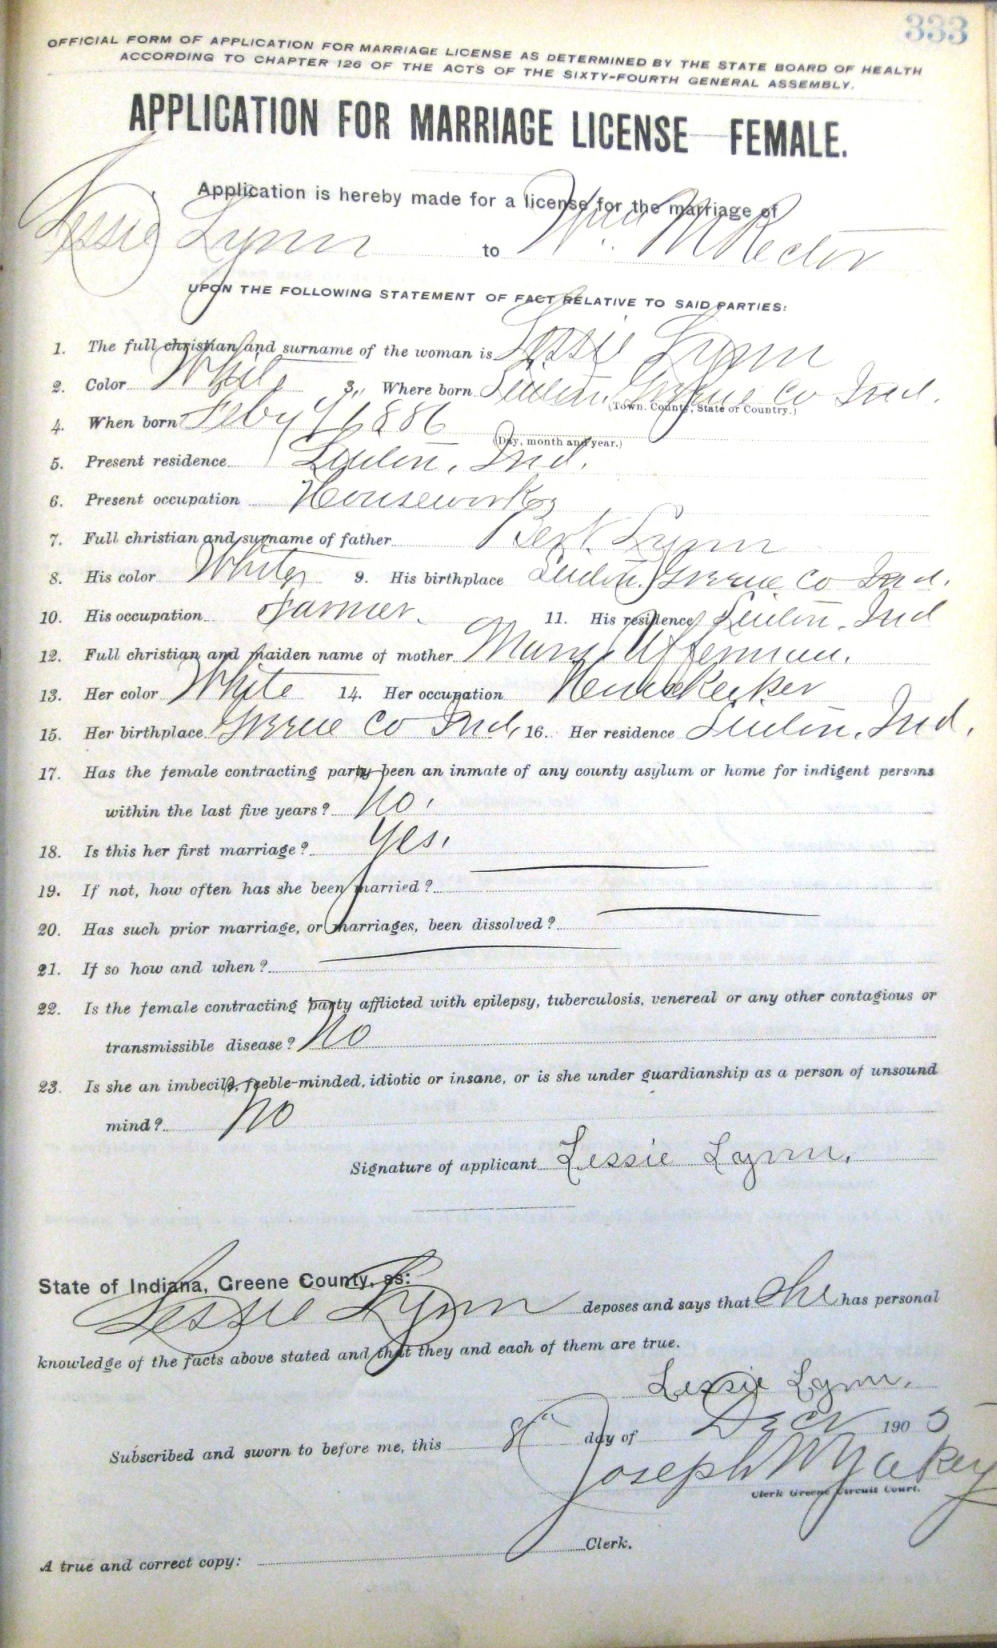 333
OFFICIAL FORM OF APPLICATION FOR MARRIAGE LICENSE AS DETERMINED BY THE STATE BOARD OF HEALTH
ACCORDING TO CHAPTER 126 OF THE ACTS OF THE SIXTY-FOURTH GENERAL ASSEMBLY.
APPLICATION FOR MARRIAGE LICENSE FEMALE.
Application is hereby made for a license for the marriage of
Lessie Lynn to Wm. M Rector
UPON THE FOLLOWING STATEMENT OF FACT RELATIVE TO SAID PARTIES:
1. The full christian and surname of the woman is Lessie Lynn
2. Color White 3. Where born Greene Co Ind.
(Town. County, State or Country.)
4. When born Feby 1886
(Day, month and year.)
5. Present residence Ind.
6. Present occupation Housework
7. Full christian and surname of father Bert Lynn
8. His color White 9. His birthplace Greene Co Ind.
10. His occupation Farmer. 11. His residence Ind
12. Full christian and maiden name of mother
13. Her color White 14. Her occupation Housekeeper
15. Her birthplace Greene Co Ind, 16. Her residence Ind.
17. Has the female contracting party been an inmate of any county asylum or home for indigent persons
within the last five years? No.
18. Is this her first marriage? Yes.
19. If not, how often has she been married?
20. Has such prior marriage, or marriages, been dissolved?
21. If so how and when?
22. Is the female contracting party afflicted with epilepsy, tuberculosis, venereal or any other contagious or
transmissible disease? No
23. Is she an imbecile, feeble-minded, idiotic or insane, or is she under guardianship as a person of unsound
mind? No
Signature of applicant Lessie Lynn.
State of Indiana, Greene County, ss:
Lessie Lynn deposes and says that she has personal
knowledge of the facts above stated and that they and each of them are true.
Lessie Lynn.
Subscribed and sworn to before me, this 8" day of Dec 1905
Joseph W Yakey
Clerk Greene Circuit Court.
A true and correct copy: Clerk.